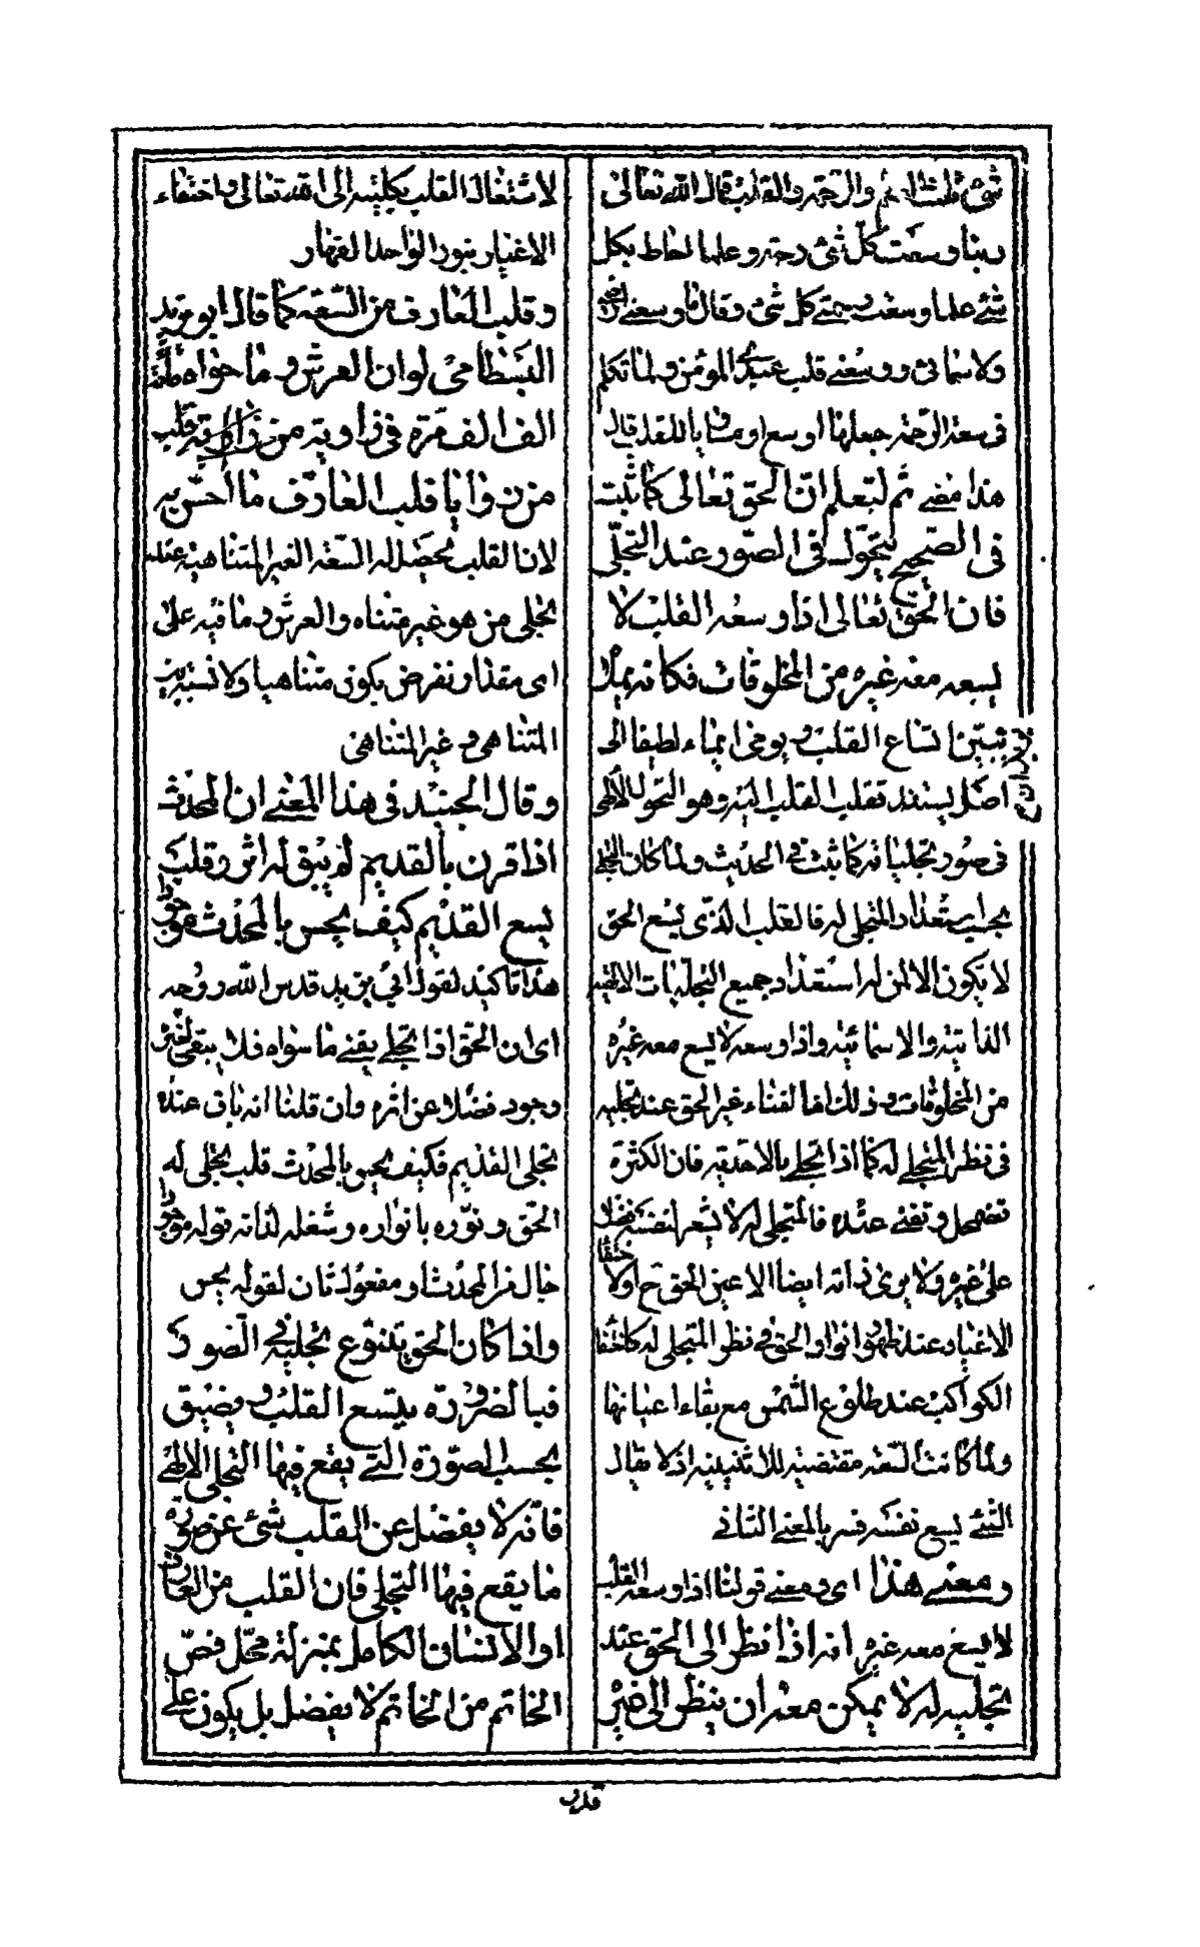 شئ مثل العلم والرحمة والقلب قال الله تعالى
ربنا وسعت كل شئ رحمة وعلما احاط بكل
شئ علما وسعت رحمتي كل شئ وقال ما وسعني ارضي
ولا سمائي ووسعني قلب عبدي المؤمن ولما تكلم
في سعة الرحمة جعلها اوسع او مساويا للقلب قال
هذا مضى ثم لتعلم ان الحق تعالى كما ثبت
في الصحيح يتحول في الصور عند التجلى
فان الحق تعالى اذا وسعه القلب لا
يسعه معه غيره من المخلوقات فكانه يملأ
يتبين اتساع القلب ويومى ايماء لطيفا الى
اصل يستند تقلب القلب اليه وهو التحول الالهى
في صور تجلياته كما ثبت في الحديث ولما كان التجلى
بحسب استعداد المتجلى له فالقلب الذى يسع الحق
لا يكون الا لمن له استعداد جميع التجليات الالهية
الذاتية والاسمائية واذا وسعه لا يسع معه غيره
من المخلوقات وذلك اما لفناء غير الحق عند تجليه
في نظر المتجلى له كما اذا تجلى بالاحدية فان الكثرة
تضمحل وتفنى عنده فالمتجلى له لا يشعر لنفسه فضلا
على غيره ولا يرى ذاته ايضا الا عين الحق ح او لاختفاء
الاغيار عند ظهور انوار الحق في نظر المتجلى له كاختفاء
الكواكب عند طلوع الشمس مع بقاء اعيانها
ولما كانت السعة مقتضية للاثنينية اذ لا يقال
الشئ يسع نفسه فسره بالمعنى الثاني
ومعنى هذا اى ومعنى قولنا اذا وسعه القلب
لا يسع معه غيره انه اذا نظر الى الحق عند
تجليه له لا يمكن معه ان ينظر الى غيره
لاشتغال القلب بكليته الى الله تعالى واختفاء
الاغيار بنور الواحد القهار
وقلب العارف من السعة كما قال ابو يزيد
البسطامى لو ان العرش وما حواه مائة
الف الف مرة في زاوية من زوايا قلب
من زوايا قلب العارف ما احس به
لان القلب يحصل له السعة الغير المتناهية عند
تجلى من هو غير متناه والعرش وما فيه على
اى مقدار نفرض يكون متناهيا ولا نسبة بين
المتناهى وغير المتناهى
وقال الجنيد في هذا المعنى ان المحدث
اذا قرن بالقديم لم يبق له اثر وقلب
يسع القديم كيف يحس بالمحدث موجودا
هذا تاكيد لقول ابي يزيد قدس الله روحه
اى ان الحق اذا تجلى يفنى ما سواه فلا يبقى لغيره
وجود فضلا عن اثره وان قلنا انه باق عنده
تجلى القديم فكيف يحس بالمحدث قلب تجلى له
الحق ونوره بانواره وشغله لذاته قوله موجودا
حال من المحدث او مفعول ثان لقوله يحس
واذا كان الحق يتنوع تجليه في الصور
فبالضرورة يتسع القلب ويضيق
بحسب الصورة التي يقع فيها التجلى الالهى
فانه لا يفضل عن القلب شئ عن صورة
ما يقع فيها التجلى فان القلب من العارف
او الانسان الكامل بمنزلة محل فص
الخاتم من الخاتم لا يفضل بل يكون على
قدره